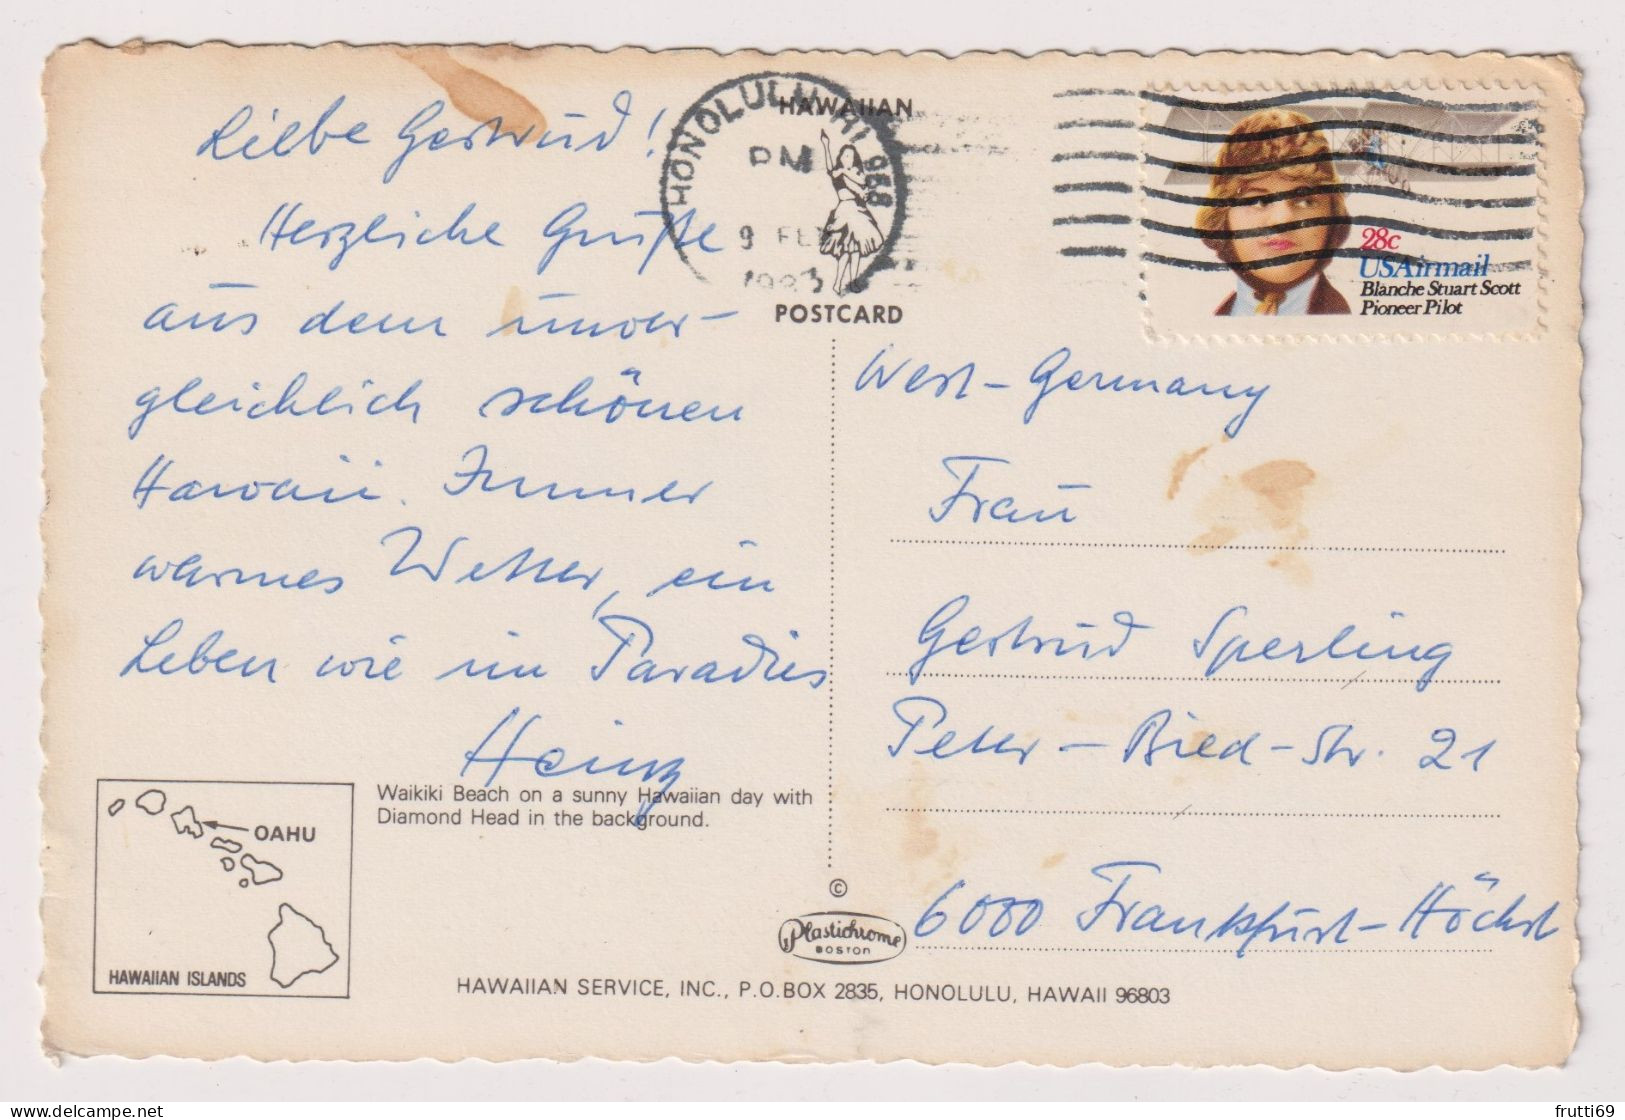 Liebe Gertrud!
Herzliche Grüße
aus dem unver-
gleichlich schönen
Hawaii. Immer
warmes Wetter, ein
Leben wie im Paradies
Heinz
HONOLULU, HI 968
PM
9 FEB
1983
HAWAIIAN
POSTCARD
28c
USAirmail
Blanche Stuart Scott
Pioneer Pilot
West-Germany
Frau
Gertrud Sperling
Peter-Bied-Str. 21
6000 Frankfurt-Höchst
Waikiki Beach on a sunny Hawaiian day with
Diamond Head in the background.
OAHU
HAWAIIAN ISLANDS
©
Plastichrome
BOSTON
HAWAIIAN SERVICE, INC., P.O.BOX 2835, HONOLULU, HAWAII 96803
frutti69